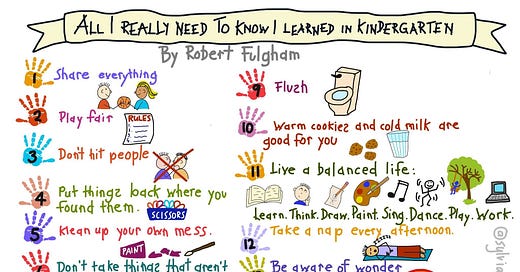 All I Really Need To Know I Learned in Kindergarten
By Robert Fulgham
1 Share everything
2 Play fair
RULES
3 Don't hit people
4 Put things back where you
found them.
SCISSORS
5 Klean up your own mess.
PAINT
Don't take things that aren't
9 Flush
10 Warm cookies and cold milk are
good for you
11 Live a balanced life:
Learn. Think. Draw. Paint. Sing. Dance. Play. Work.
12 Take a nap every afternoon.
Be aware of wonder
@sylvia